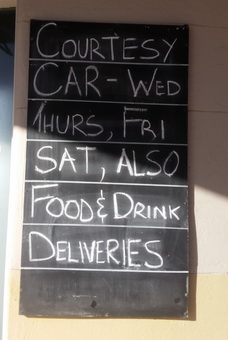 COURTESY
CAR - WED
THURS, FRI
SAT, ALSO
FOOD & DRINK
DELIVERIES